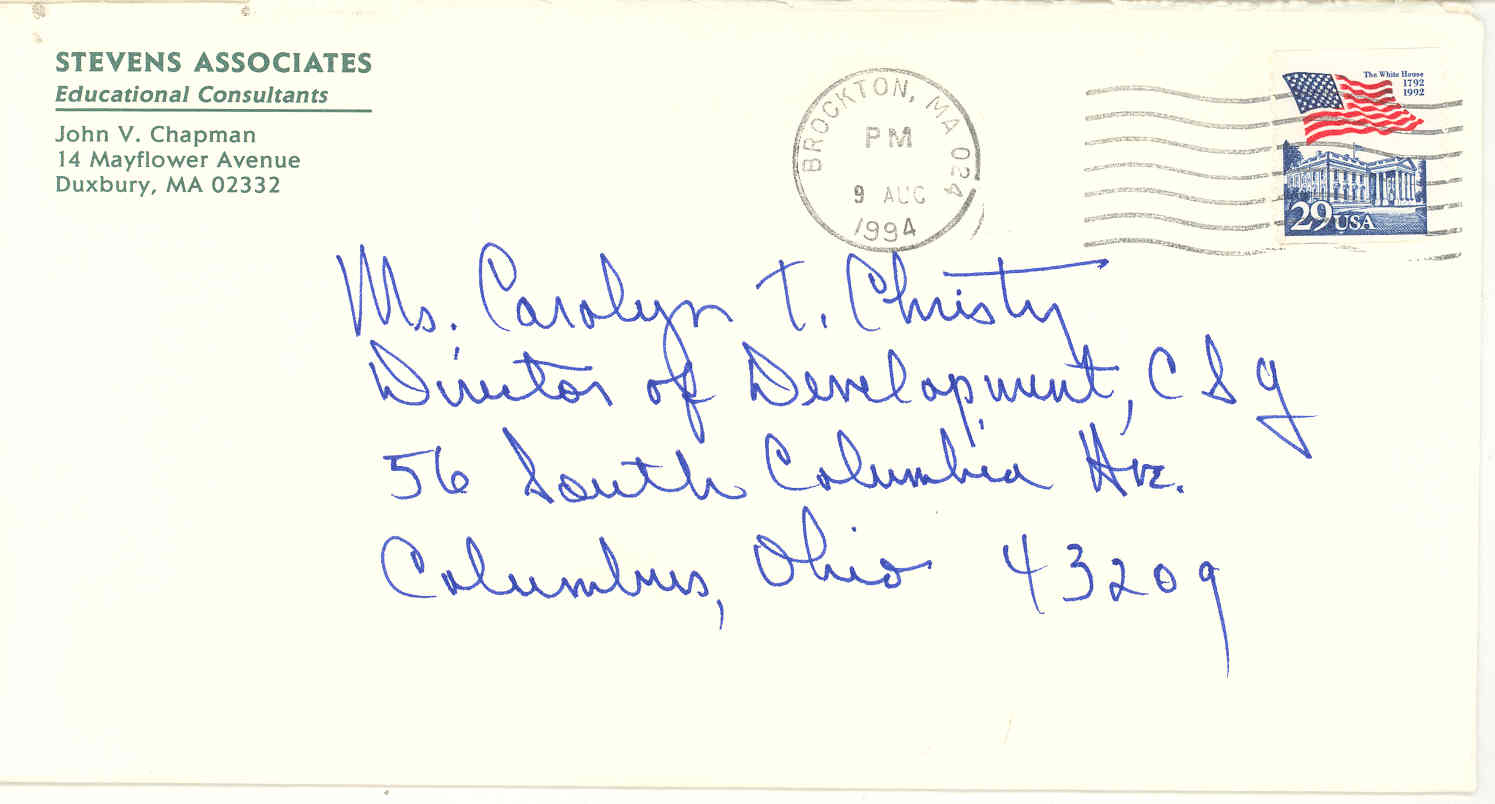 STEVENS ASSOCIATES
Educational Consultants
John V. Chapman
14 Mayflower Avenue
Duxbury, MA 02332
BROCKTON, MA 024
PM
9 AUG
1994
The White House
1792
1992
29 USA
Ms. Carolyn T. Christy
Director of Development, CSG
56 South Columbia Ave.
Columbus, Ohio 43209